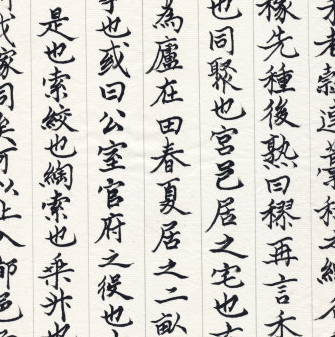 者穀連藁秸之總名
稼先種後熟曰穋再言禾
也同聚也宮邑居之宅也古
為廬在田春夏居之二畝
事也或曰公室官府之役也
是也索絞也綯索也乘升也
我稼同矣可以上入都邑